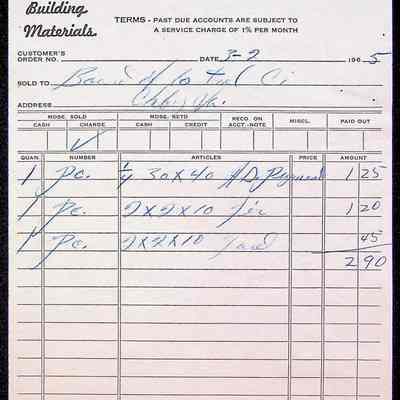 Building
Materials
TERMS - PAST DUE ACCOUNTS ARE SUBJECT TO
A SERVICE CHARGE OF 1% PER MONTH
CUSTOMER'S
ORDER NO. DATE 3-2 1965
SOLD TO of
ADDRESS
MDSE. SOLD MDSE. RETD REC. ON ACCT.-NOTE MISCL. PAID OUT
CASH CHARGE CASH CREDIT
QUAN. NUMBER ARTICLES PRICE AMOUNT
1 Pc. 1/4 30 X 40 AD 1 25
1 Pc. 2 X 2 X 10 Fir 1 20
1 Pc. 2 X 2 X 10 45
2 90